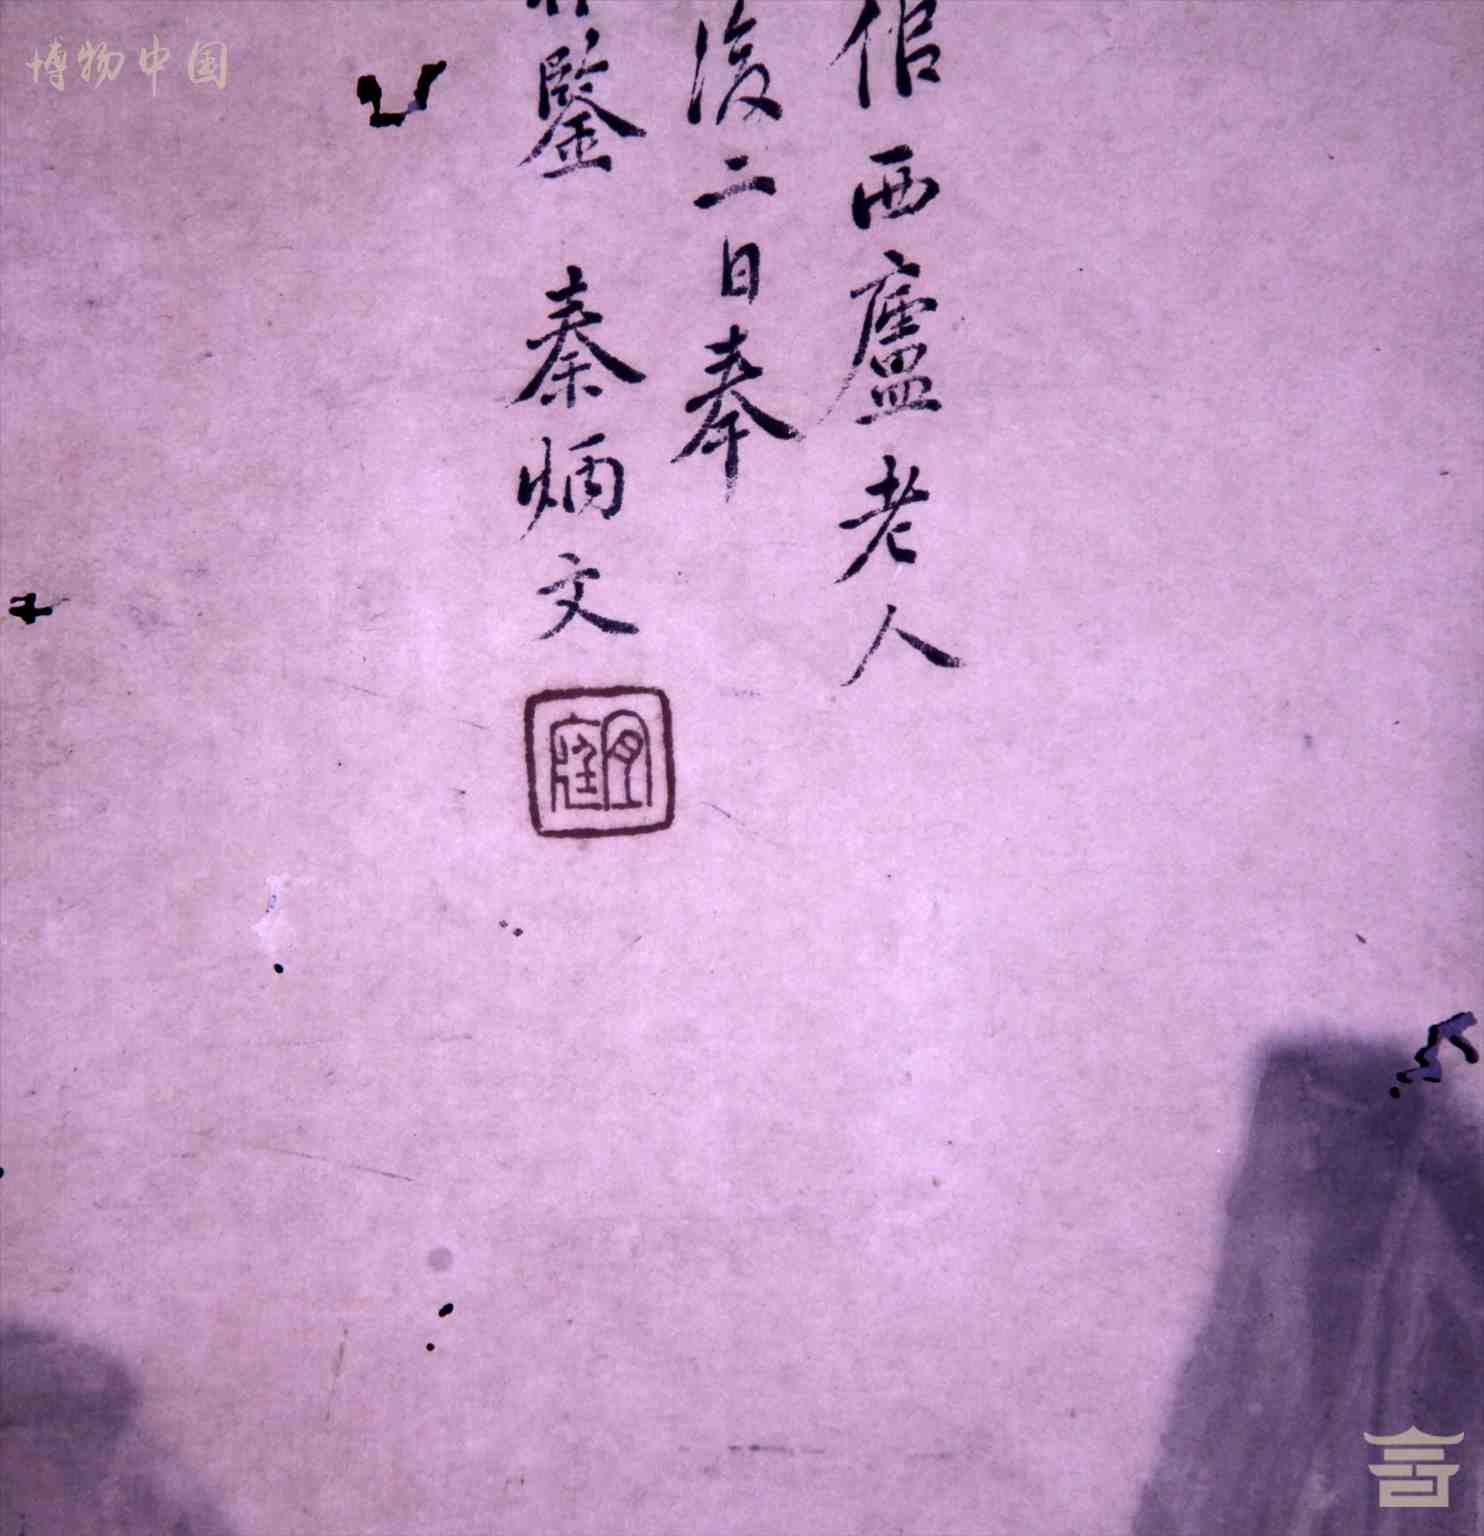 倌西廬老人
後二日奉
鑒 秦炳文
博物中国